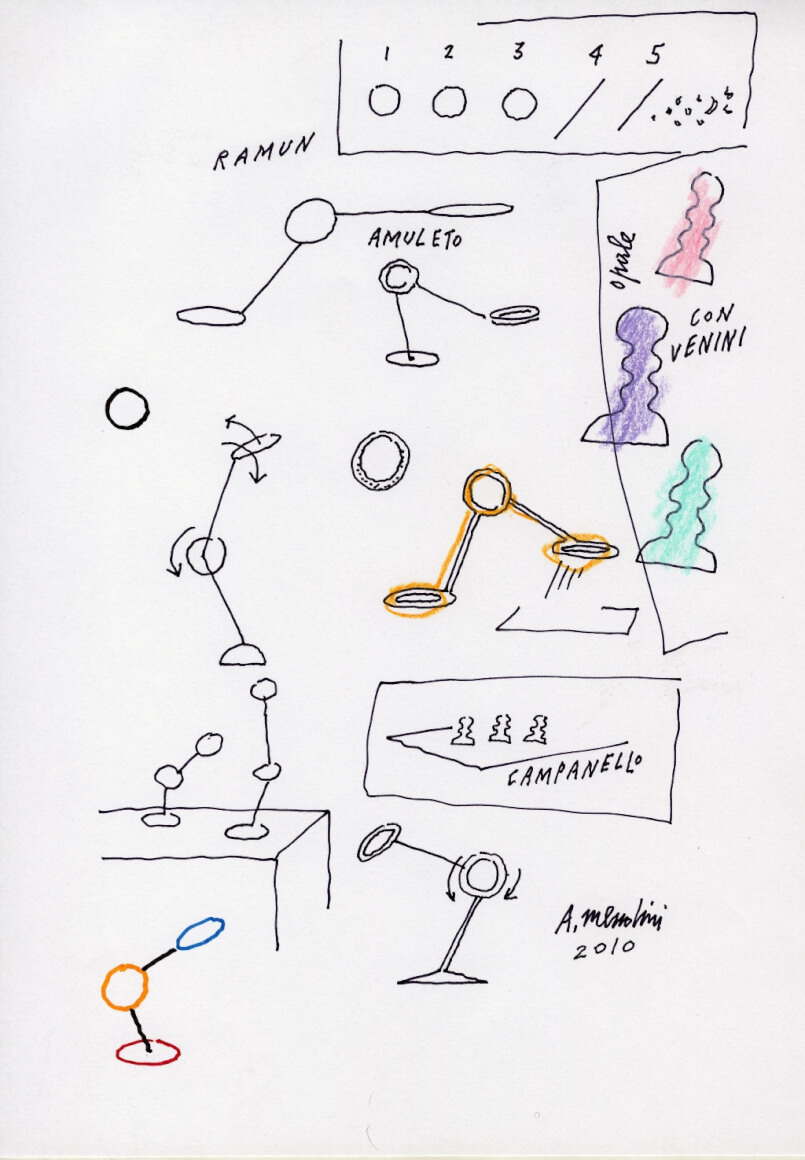 1 2 3 4 5
RAMUN
AMULETO
opale
CON
VENINI
CAMPANELLO
A. Mendini
2010